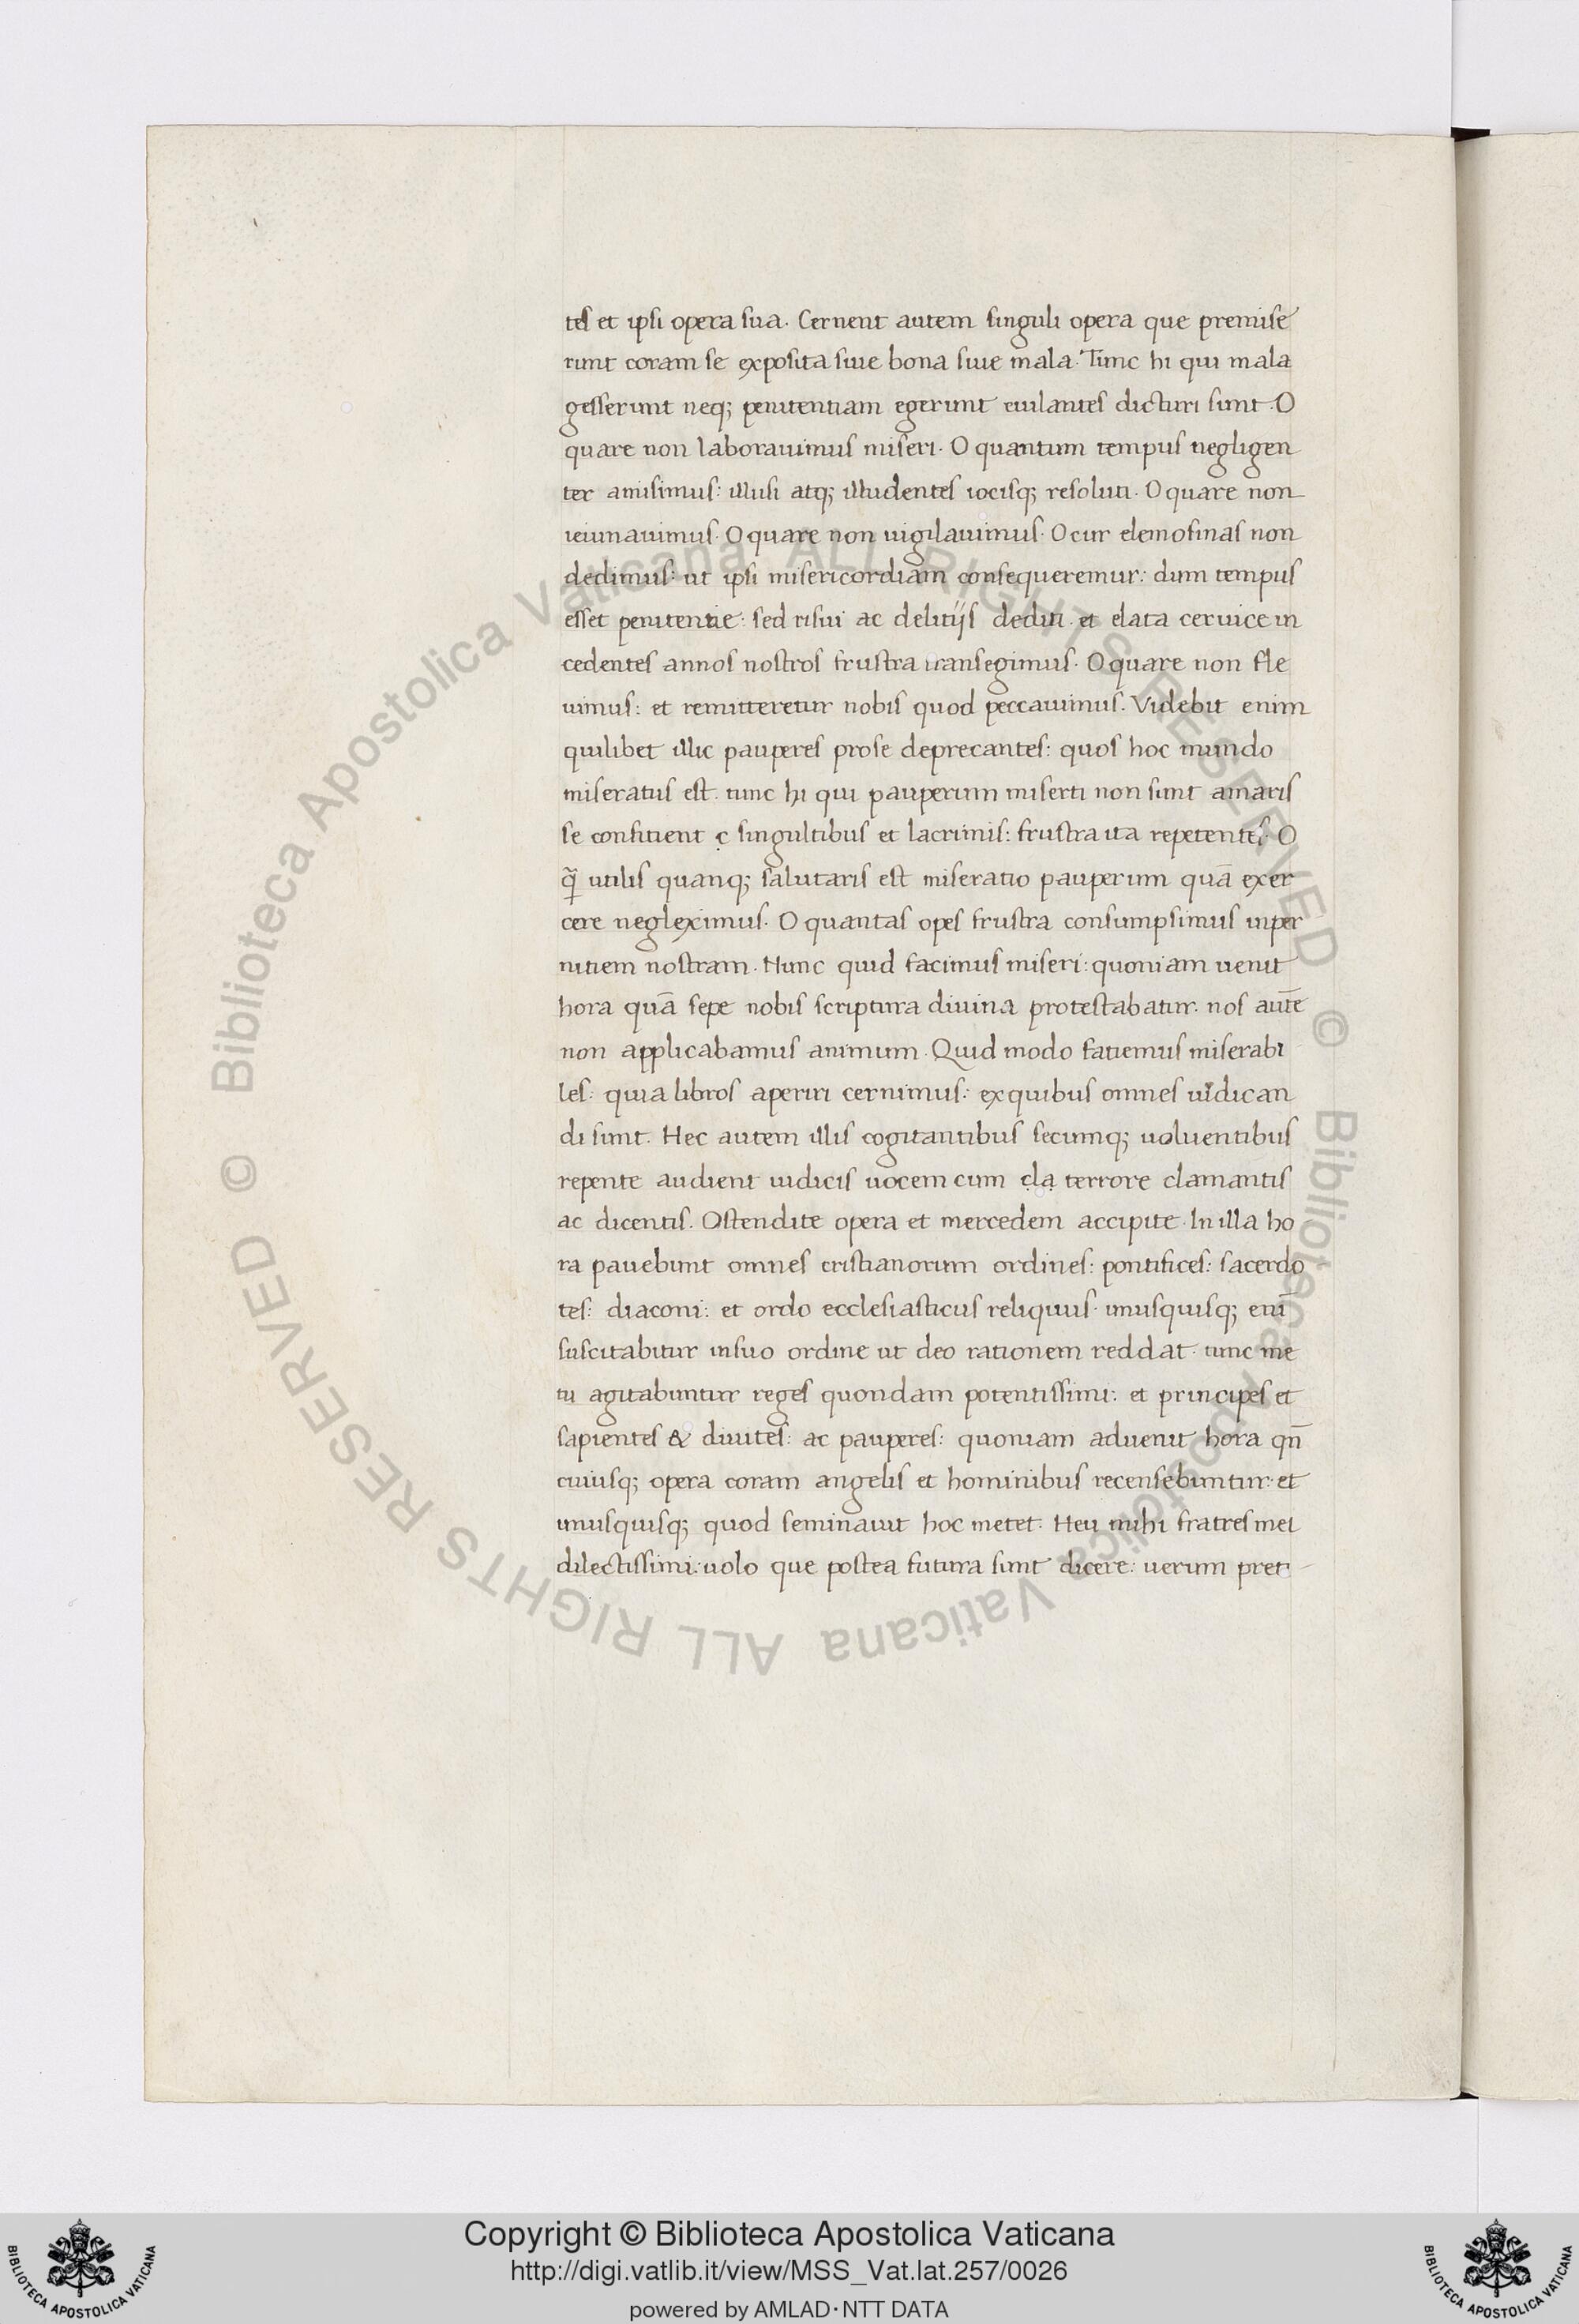 tes et ipsi opera sua. Cernent autem singuli opera que premise
runt coram se exposita siue bona siue mala. Tunc hi qui mala
gesserunt neq; penitentiam egerunt eiulantes dicturi sunt. O
quare non laborauimus miseri. O quantum tempus negligen
ter amisimus: illusi atq; illudentes iocisq; resoluti. O quare non
ieiunauimus. O quare non uigilauimus. O cur elemosinas non
dedimus: ut ipsi misericordiam consequeremur: dum tempus
esset penitentie: sed risui ac delitijs dediti. et elata ceruice in
cedentes annos nostros frustra transegimus. O quare non fle
uimus: et remitteretur nobis quod peccauimus. Videbit enim
quilibet illic pauperes prose deprecantes: quos hoc mundo
miseratus est. tunc hi qui pauperum miserti non sunt amaris
se conficient c singultibus et lacrimis: frustra ita repetentes. O
q̃ utilis quanq; salutaris est miseratio pauperum quā exer
cere negleximus. O quantas opes frustra consumpsimus inper
nitiem nostram. Nunc quid facimus miseri: quoniam uenit
hora quā sepe nobis scriptura diuina protestabatur. nos autē
non applicabamus animum. Quid modo fatiemus miserabi
les: quia libros aperiri cernimus: ex quibus omnes iudican
di sunt. Hec autem illis cogitantibus secumq; uoluentibus
repente audient iudicis uocem cum cla terrore clamantis
ac dicentis. Ostendite opera et mercedem accipite. In illa ho
ra pauebunt omnes cristianorum ordines: pontifices: sacerdo
tes: diaconi: et ordo ecclesiasticus reliquus. unusquisq; eni̅
suscitabitur insuo ordine ut deo rationem reddat. tunc me
tu agitabuntur reges quondam potentissimi: et principes et
sapientes & diuites: ac pauperes: quoniam aduenit hora qn̄
cuiusq; opera coram angelis et hominibus recensebuntur: et
unusquisq; quod seminauit hoc metet. Heu mihi fratres mei
dilectissimi: uolo que postea futura sunt dicere: uerum pre
© Biblioteca Apostolica Vaticana ALL RIGHTS RESERVED © Biblioteca Apostolica Vaticana ALL RIGHTS RESERVED
Copyright © Biblioteca Apostolica Vaticana
http://digi.vatlib.it/view/MSS_Vat.lat.257/0026
powered by AMLAD·NTT DATA
BIBLIOTECA APOSTOLICA VATICANA
BIBLIOTECA APOSTOLICA VATICANA